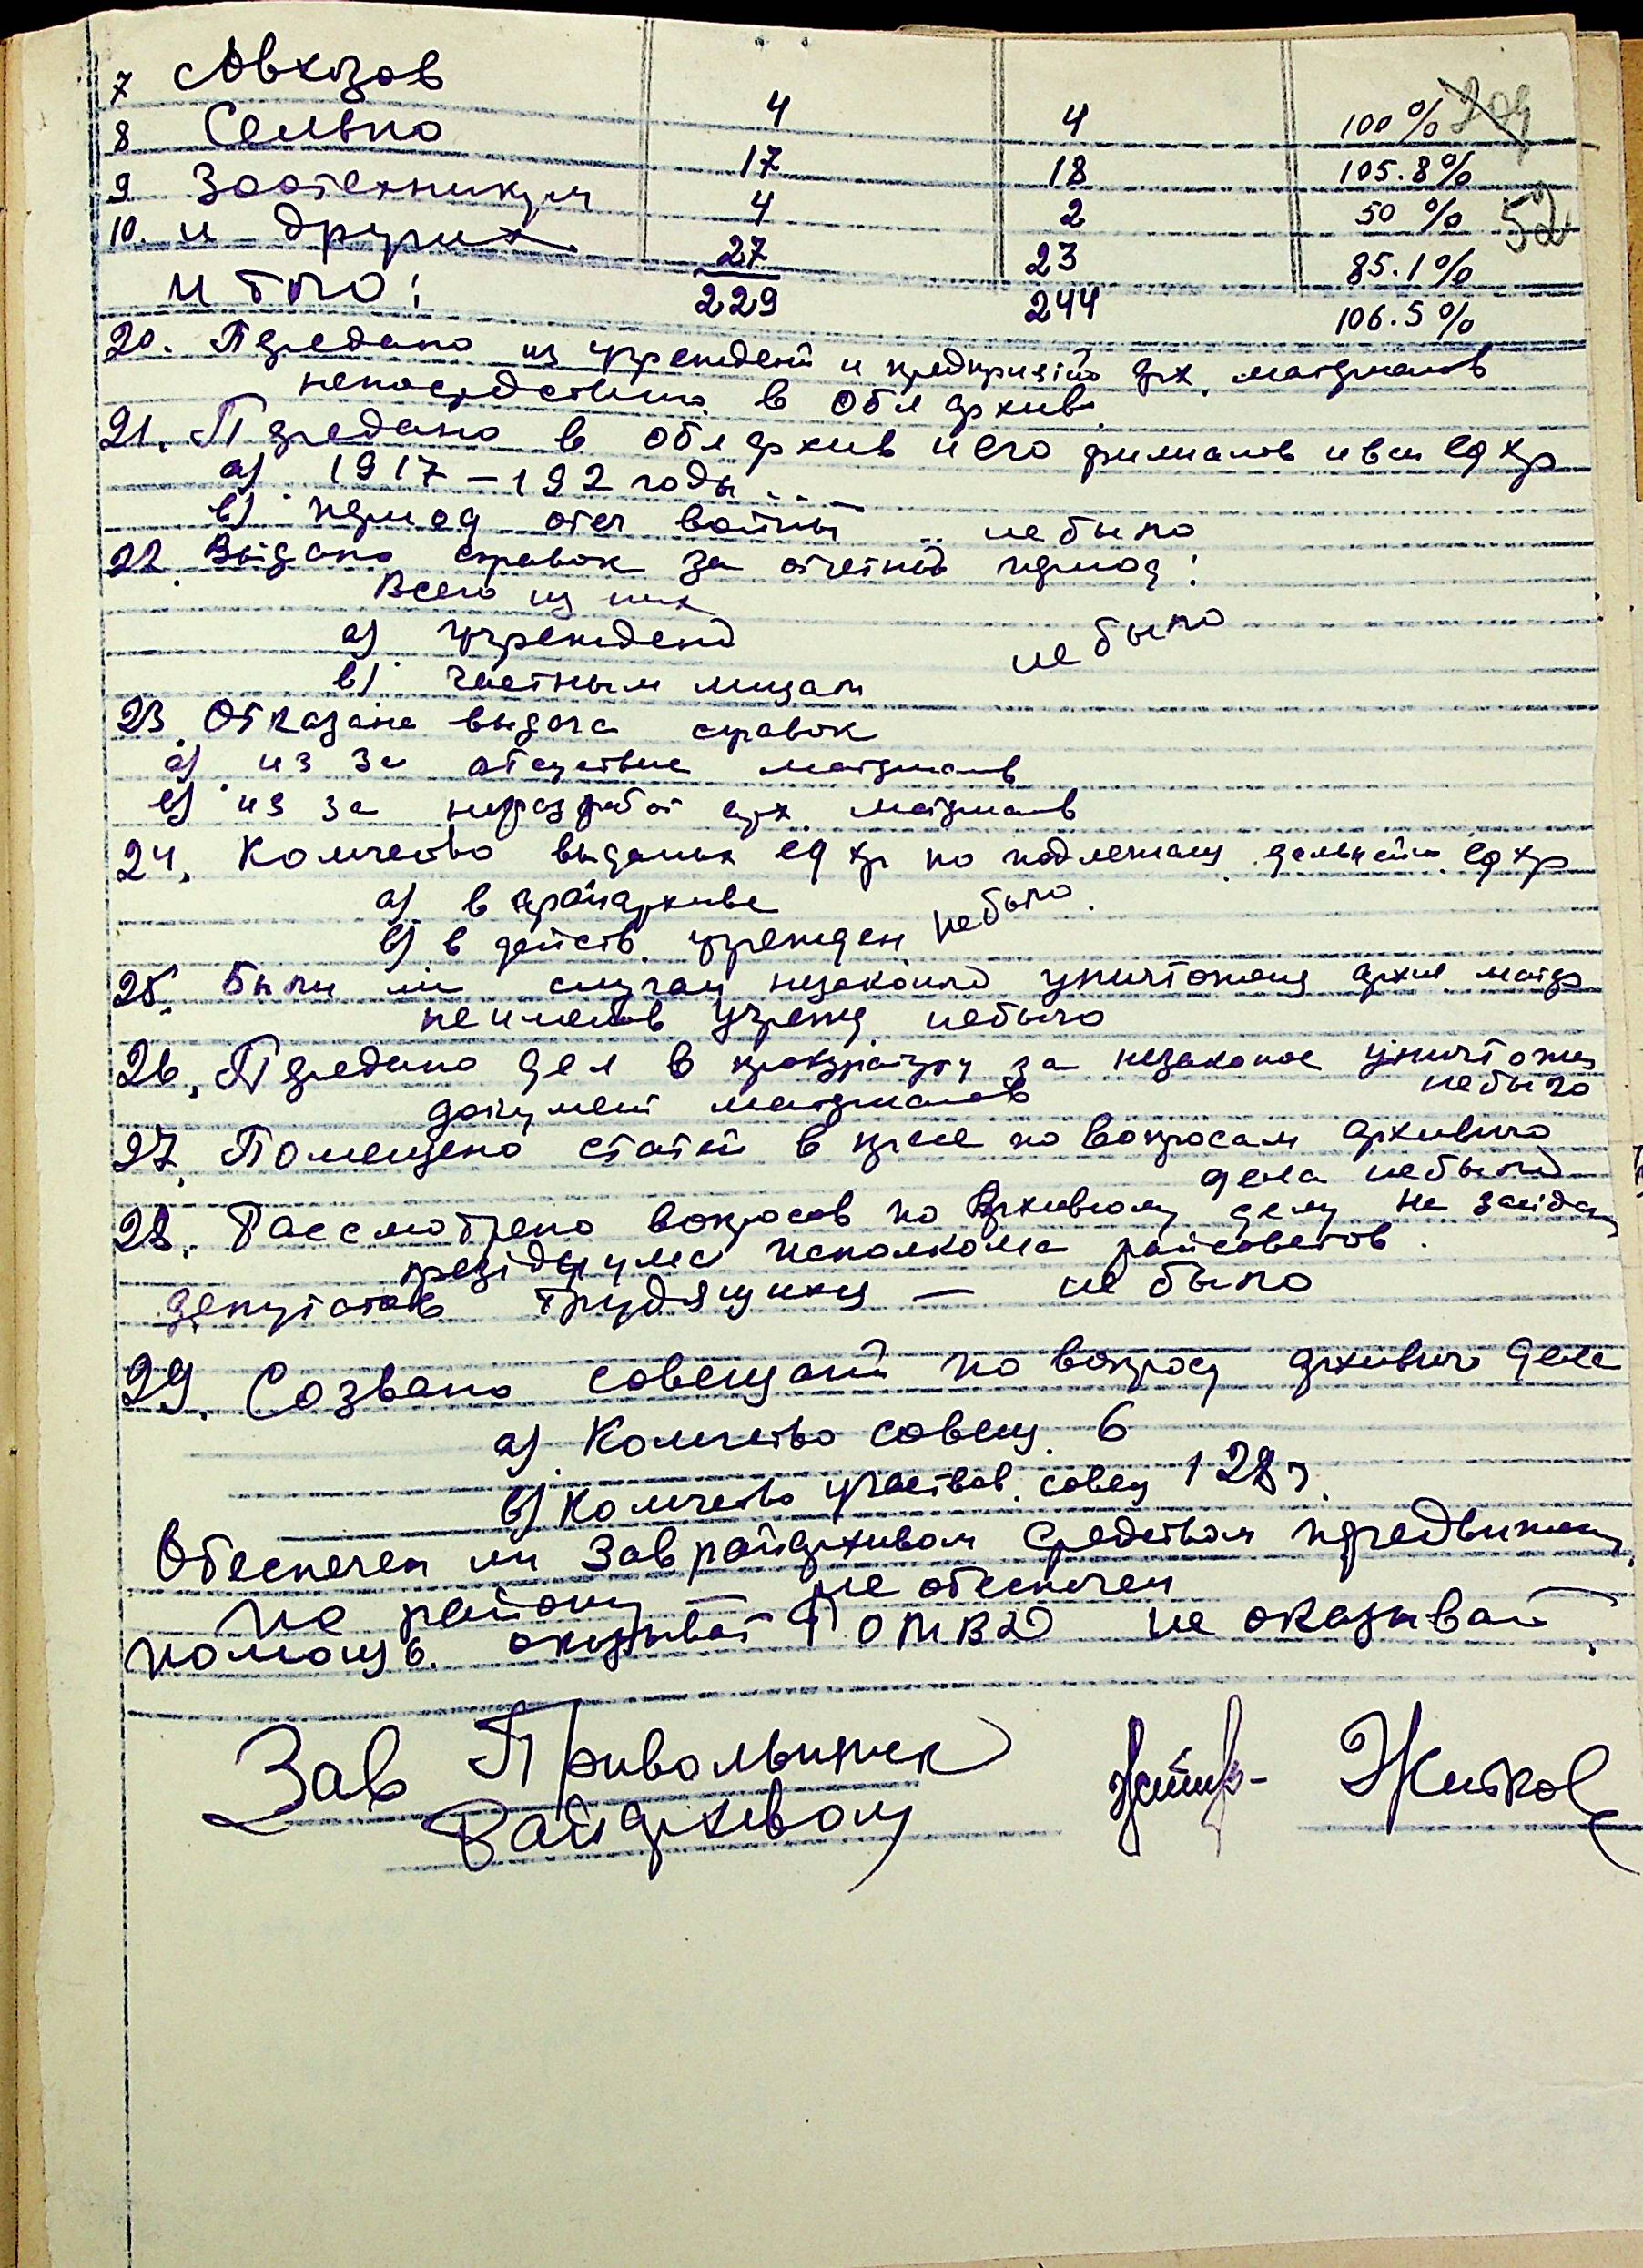 7 Совхозов 4 4 100% 209
8 Сельпо 17 18 105.8%
9 Зоотехникум 4 2 50% 52
10. и других 27 23 85.1%
итого: 229 244 106.5%
20. Передано из учрежден и предприятий арх. материалов
непосредствено в Обл архив.
21. Передано в обл архив и его филиалов и вси ед хр
а) 1917–192 годы ...
в) период отеч войны .. не было
22. Выдано справок за отчетный период:
Всего из них
а) учрежден не было
в) частным лицам
23. Отказано выдача справок
а) из за отсуствие материалов
в) из за неразработ арх. материалов
24. Количество выданых ед хр по подлежащ. дальнейш. ед хр
а) в райархиве
в) в действ. учрежден не было.
25. Были ли случаи незаконо уничтожения архив. матер
не имелов учрежд не было
26. Передано дел в прокуратуру за незаконое уничтожен
документ материалов не было
27. Помещено статей в прессе по вопросам архивного
дела не было
28. Рассмотрено вопросов по Архивному делу на заседан
президиума исполкома райсоветов.
депутатов трудящихся — не было
29. Созвано совещаний по вопросу архивного дела
а) Количество совещ. 6
в) количество участвов. совещ 128 ч.
Обеспечен ли Заврайархивом средством передвижен.
по району — не обеспечен
помощь. оказывает РОМВД не оказывает.
Зав Привольнянск
Райархивом Житков